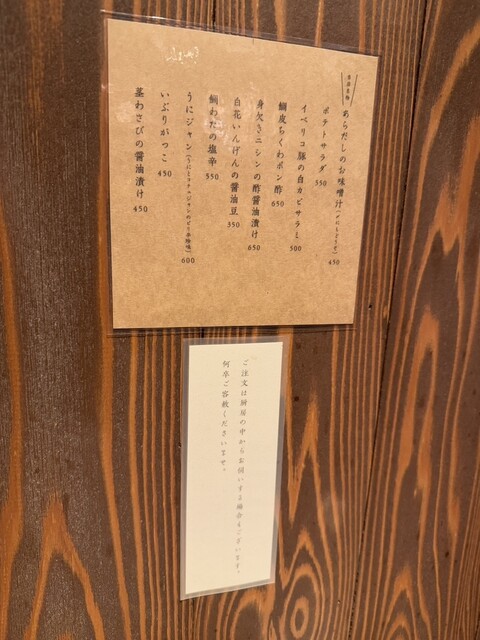 あらだしのお味噌汁
450
ポテトサラダ 550
イベリコ豚の白カビサラミ 500
鯛皮ちくわポン酢 650
身欠きニシンの酢醤油漬け 650
白花いんげんの醤油豆 350
鯛わたの塩辛 550
うにジャン 600
いぶりがっこ 450
茎わさびの醤油漬け 450
ご注文は厨房の中からお伺いする場合もございます。
何卒ご容赦くださいませ。